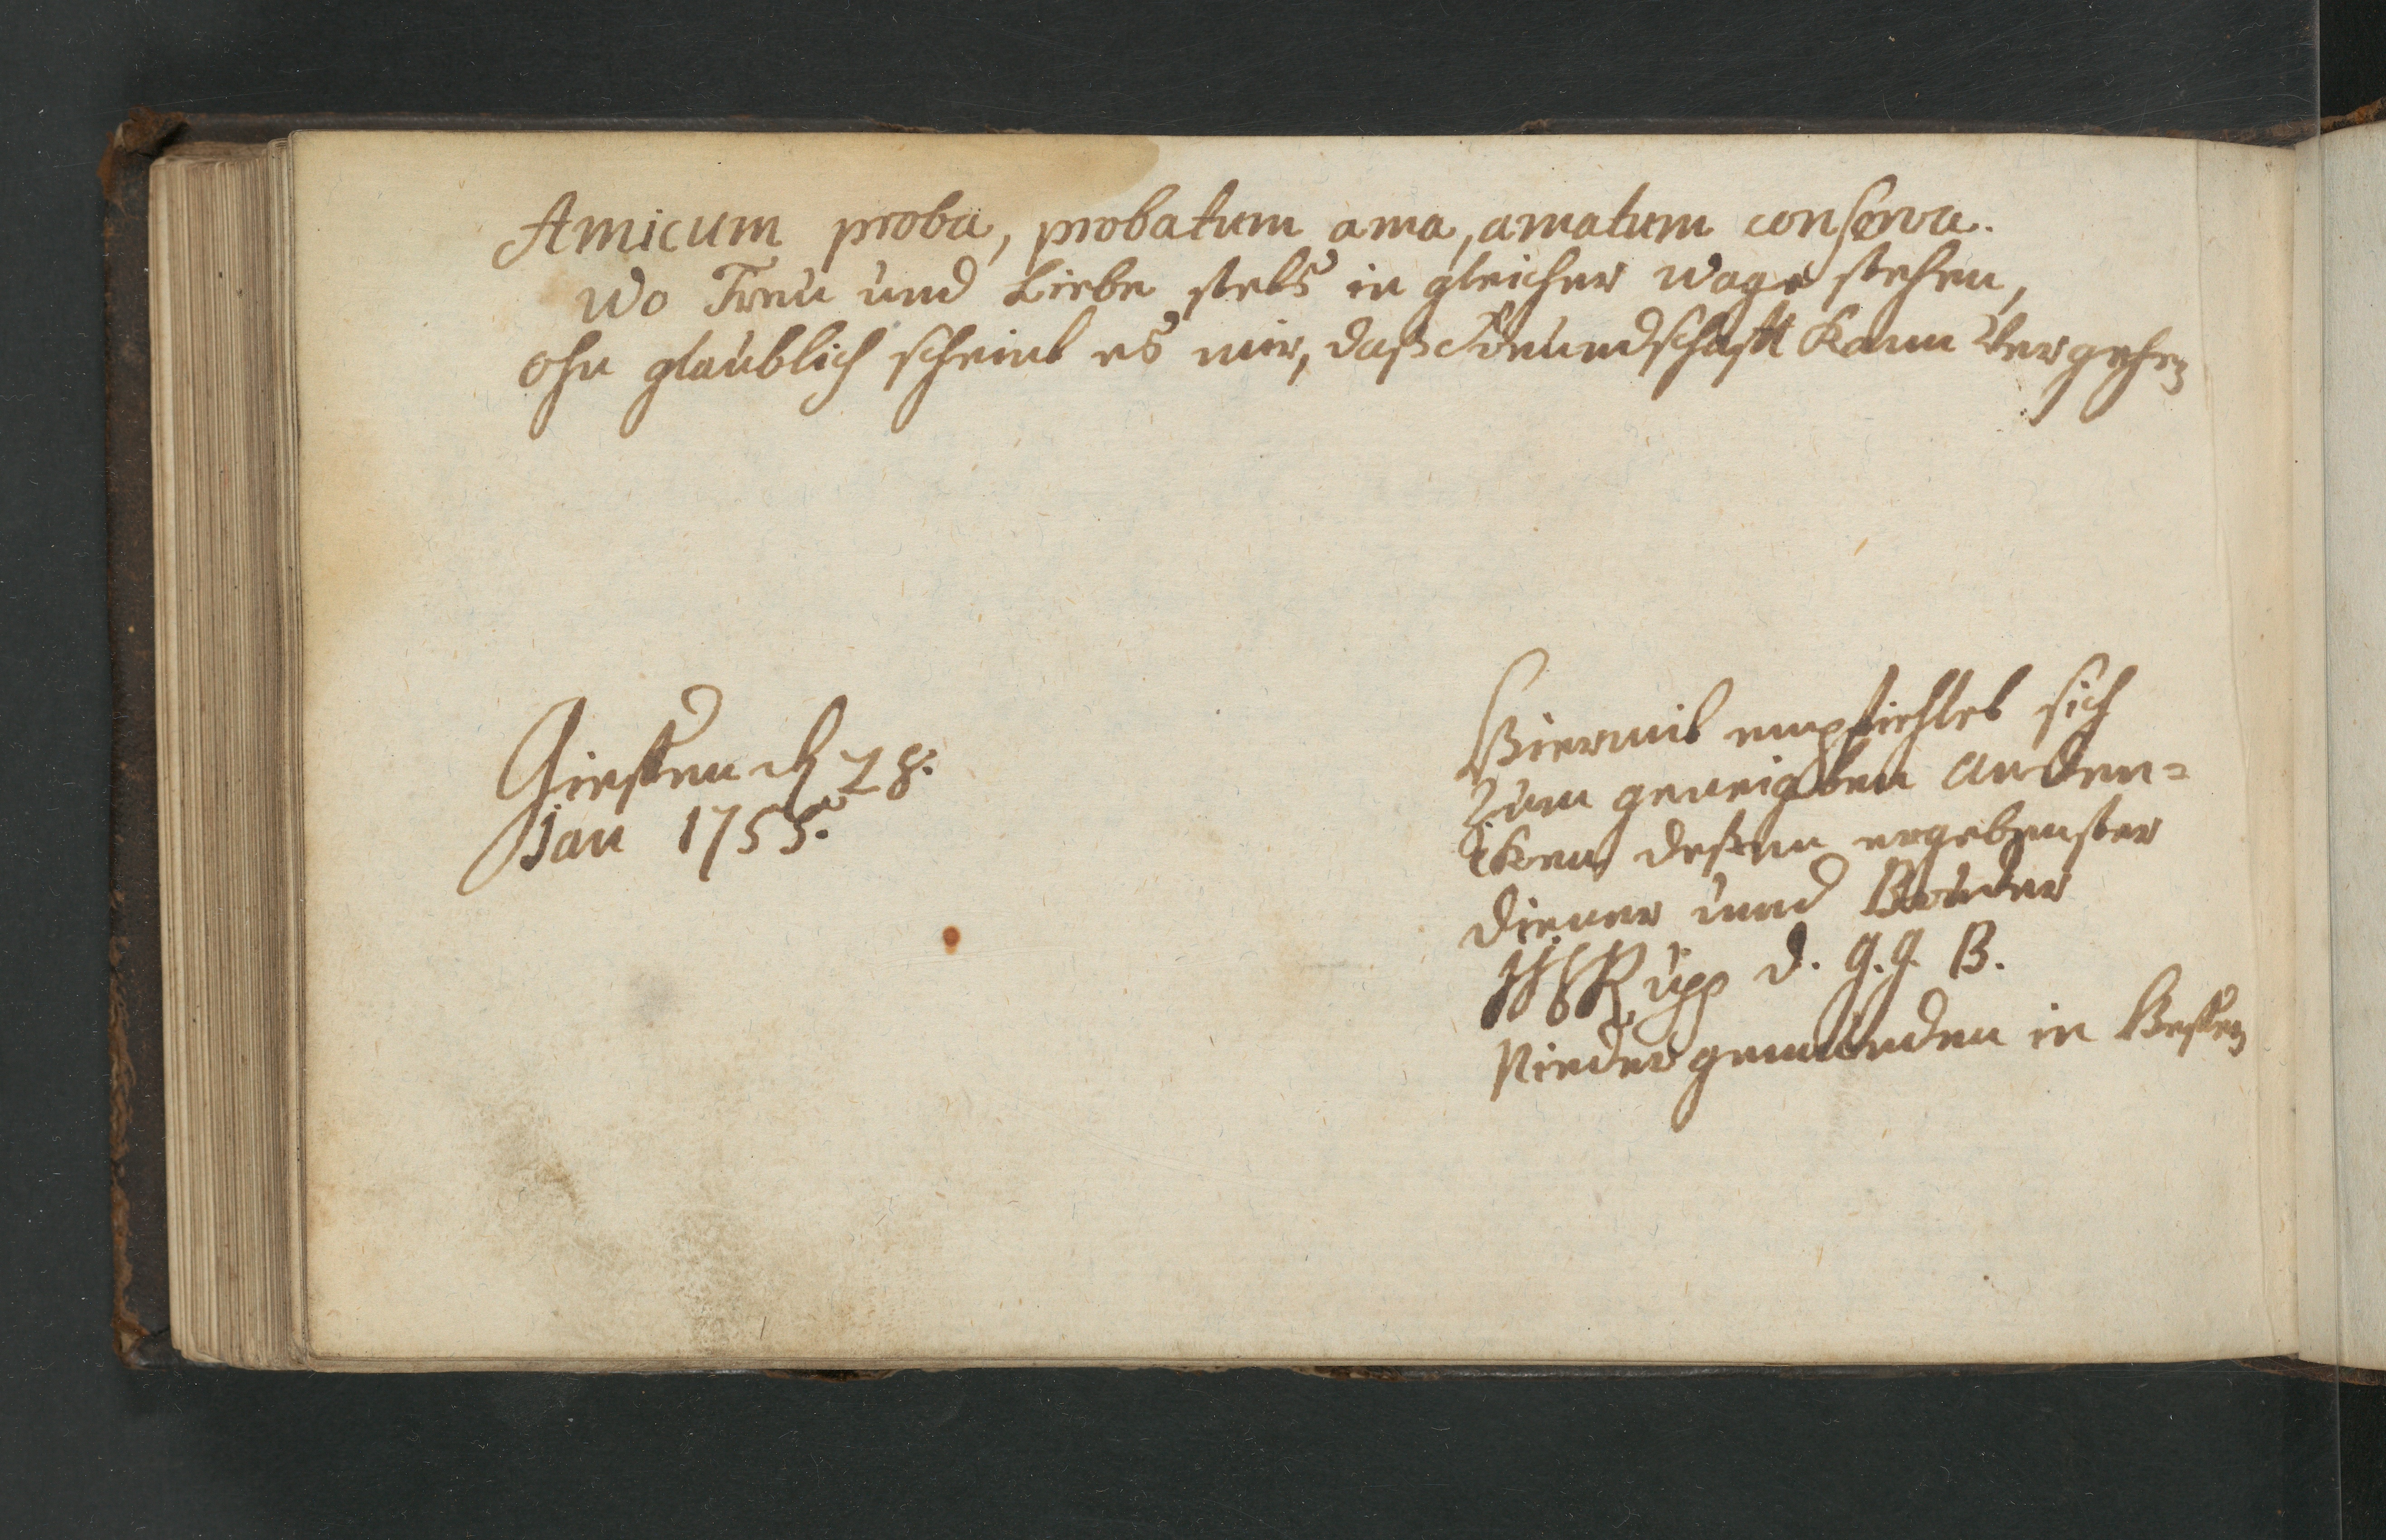 Amicum proba, probatum ama, amatum conserva.
Wo Treu und Liebe stets in gleicher Wage stehen,
ohn glaublich scheint es mir, daß Freundschafft kann vergehen
Giessen d 28.
Jan 1755.
Hiermit empfiehlet sich
zum geneigten Anden=
ken dessen ergebenster
Diener und Bruder
Rupp d. G. G. B.
Niedergemünden in Hessen